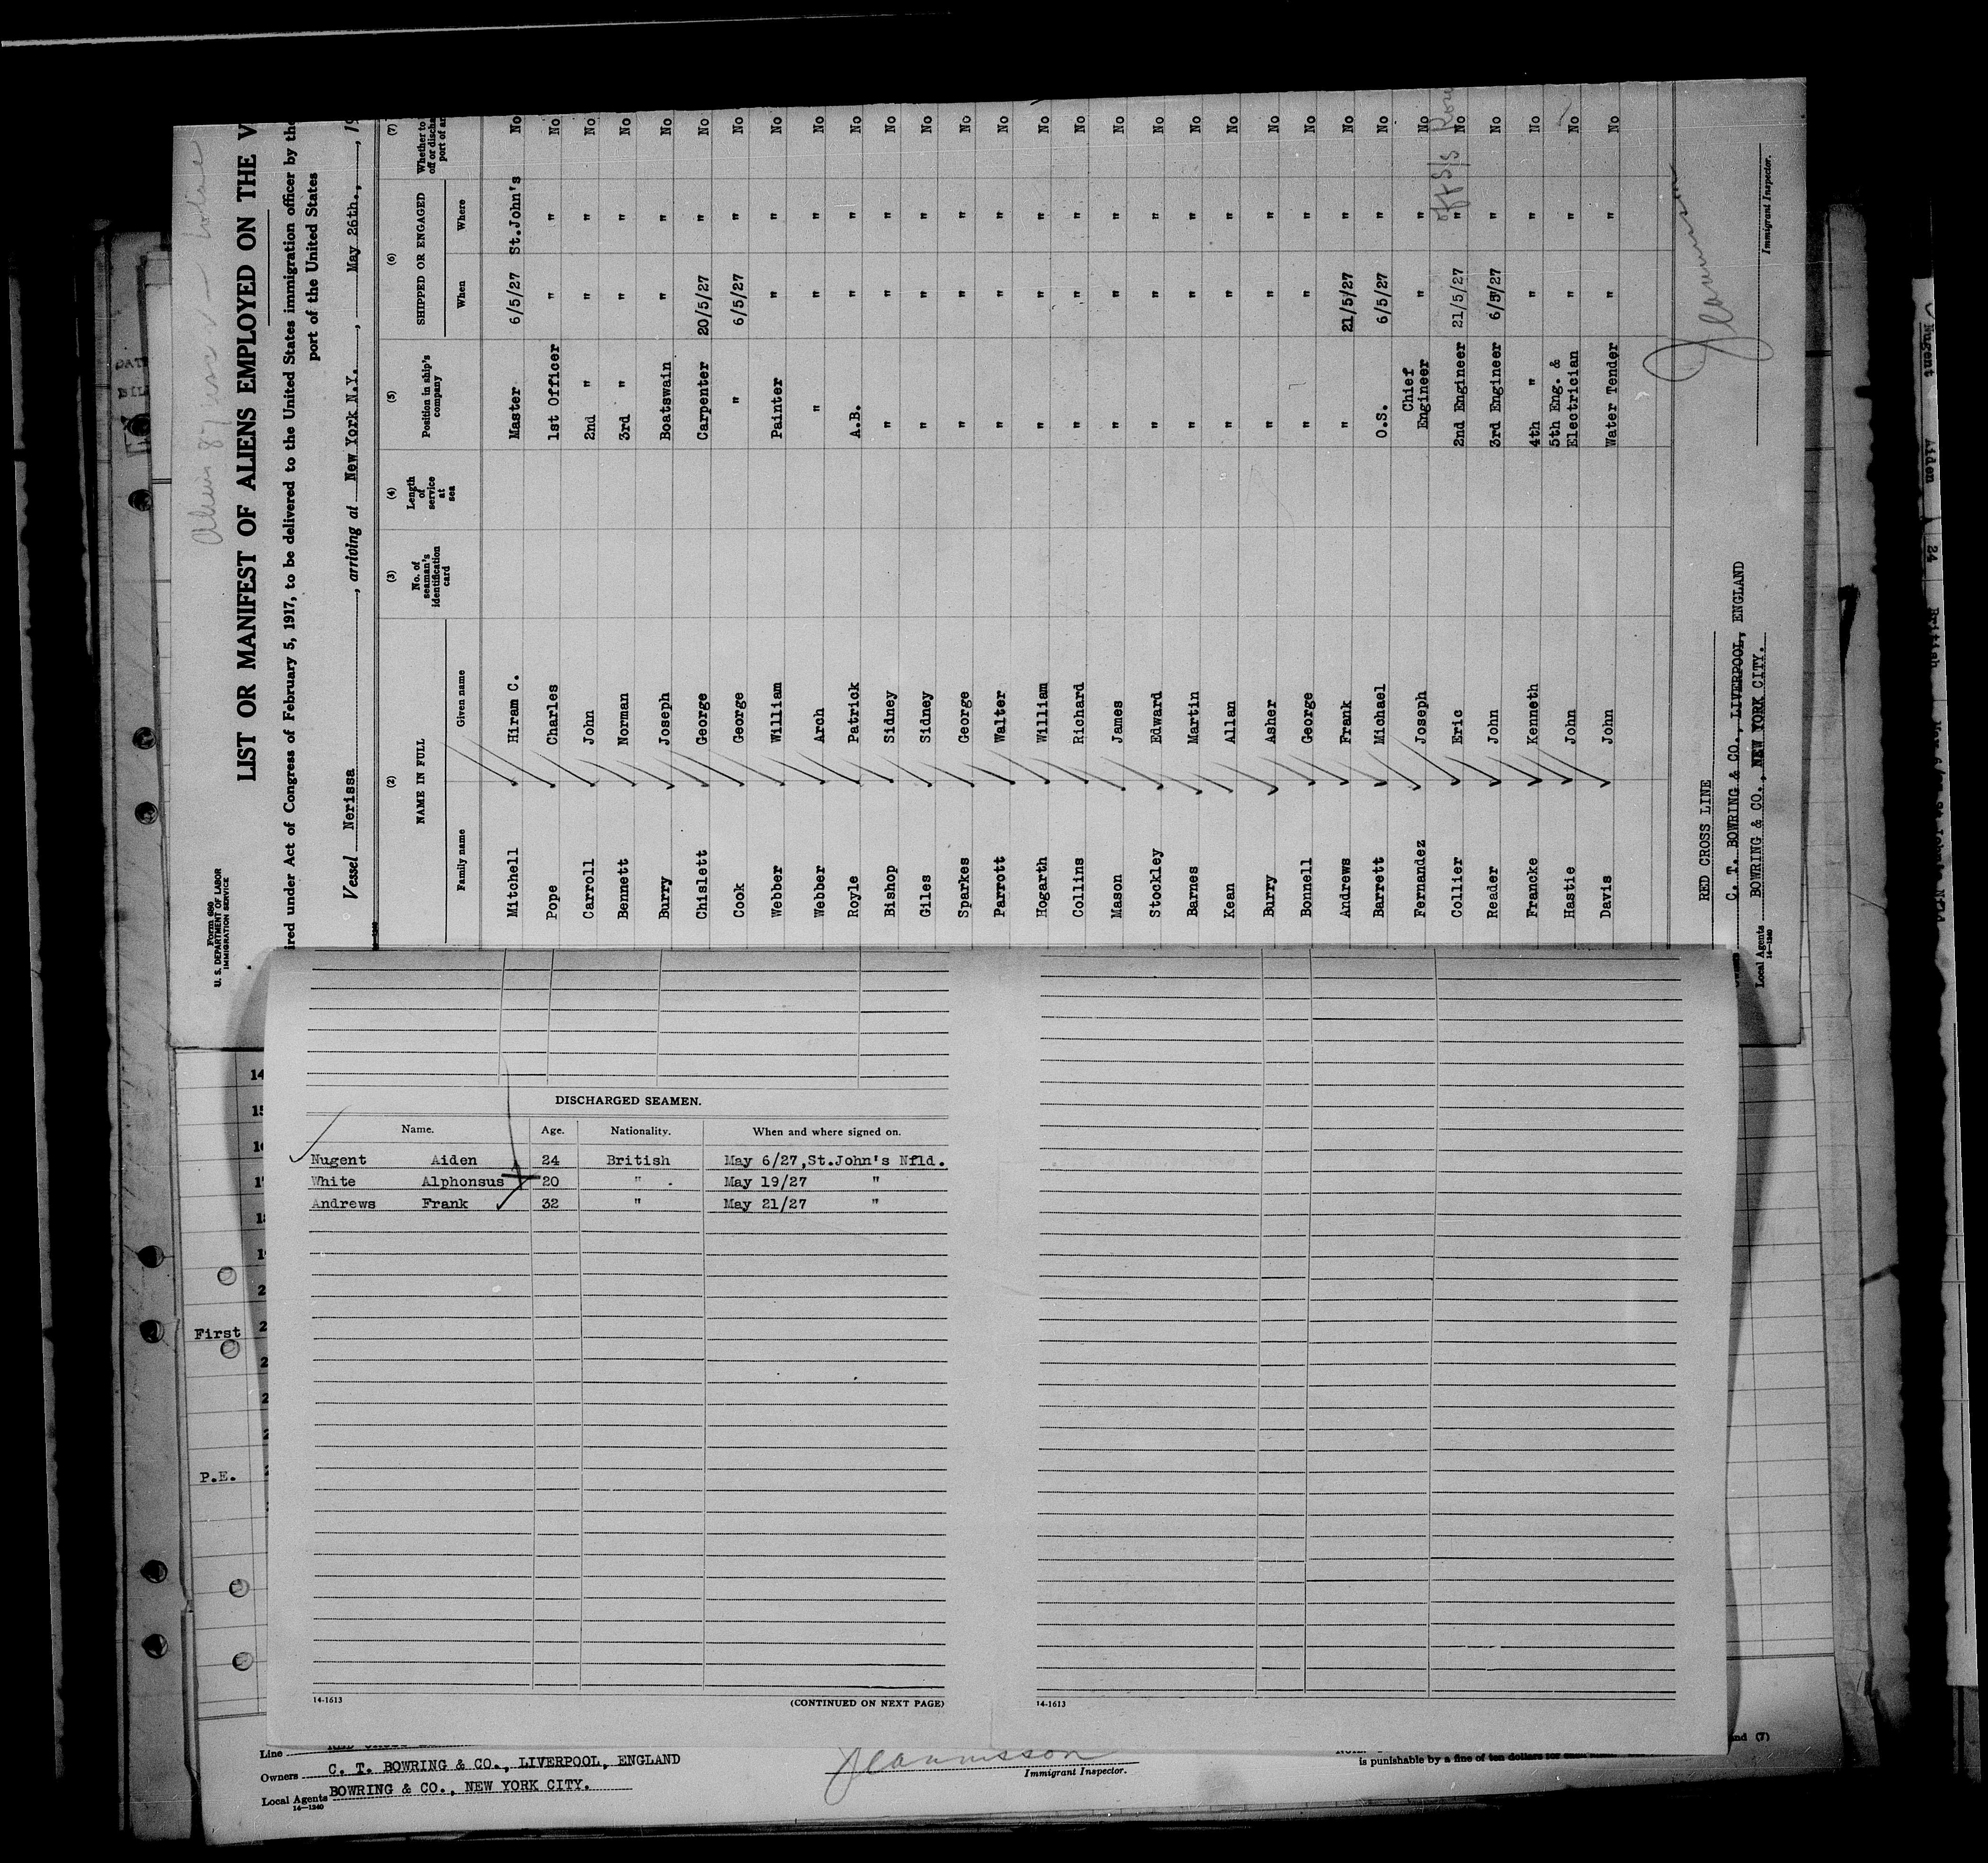 Form 680
U. S. DEPARTMENT OF LABOR
IMMIGRATION SERVICE
LIST OR MANIFEST OF ALIENS EMPLOYED ON THE V
ired under Act of Congress of February 5, 1917, to be delivered to the United States immigration officer by the
port of the United States
Vessel Nerissa, arriving at New York N.Y., May 26th., 19
(2) (3) (4) (5) (6) (7)
NAME IN FULL No. of seaman's identification card Length of service at sea Position in ship's company SHIPPED OR ENGAGED Whether to
off or discha
port of ar
Family name Given name When Where
Mitchell Hiram C. Master 6/5/27 St.John's No
Pope Charles 1st Officer " " No
Carroll John 2nd " " " No
Bennett Norman 3rd " " " No
Burry Joseph Boatswain " " No
Chislett George Carpenter 20/5/27 " No
Cook George " 6/5/27 " No
Webber William Painter " " No
Webber Arch " " " No
Royle Patrick A.B. " " No
Bishop Sidney " " " No
Giles Sidney " " " No
Sparkes George " " " No
Parrott Walter " " " No
Hogarth William " " " No
Collins Richard " " " No
Mason James " " " No
Stockley Edward " " " No
Barnes Martin " " " No
Kean Allan " " " No
Burry Asher " " " No
Bonnell George " " " No
Andrews Frank " 21/5/27 " No
Barrett Michael O.S. 6/5/27 " No
Fernandez Joseph Chief Engineer " " No
Collier Eric 2nd Engineer 21/5/27 " No
Reader John 3rd Engineer 6/5/27 " No
Francke Kenneth 4th " " " No
Hastie John 5th Eng. & Electrician " " No
Davis John Water Tender " " No
off S/S
RED CROSS LINE
C. T. BOWRING & CO., LIVERPOOL, ENGLAND
Local Agents BOWRING & CO., NEW YORK CITY.
14—1240
Immigrant Inspector.
DISCHARGED SEAMEN.
Name. Age. Nationality. When and where signed on.
Nugent Aiden 24 British May 6/27,St.John's Nfld.
White Alphonsus 20 " May 19/27 "
Andrews Frank 32 " May 21/27 "
14-1613 (CONTINUED ON NEXT PAGE)
14-1613
14
First
P.E.
Line
Owners C. T. BOWRING & CO., LIVERPOOL, ENGLAND
Local Agents BOWRING & CO., NEW YORK CITY.
14—1240
Immigrant Inspector.
is punishable by a fine of ten dollars for
Nugent Aiden 24 British